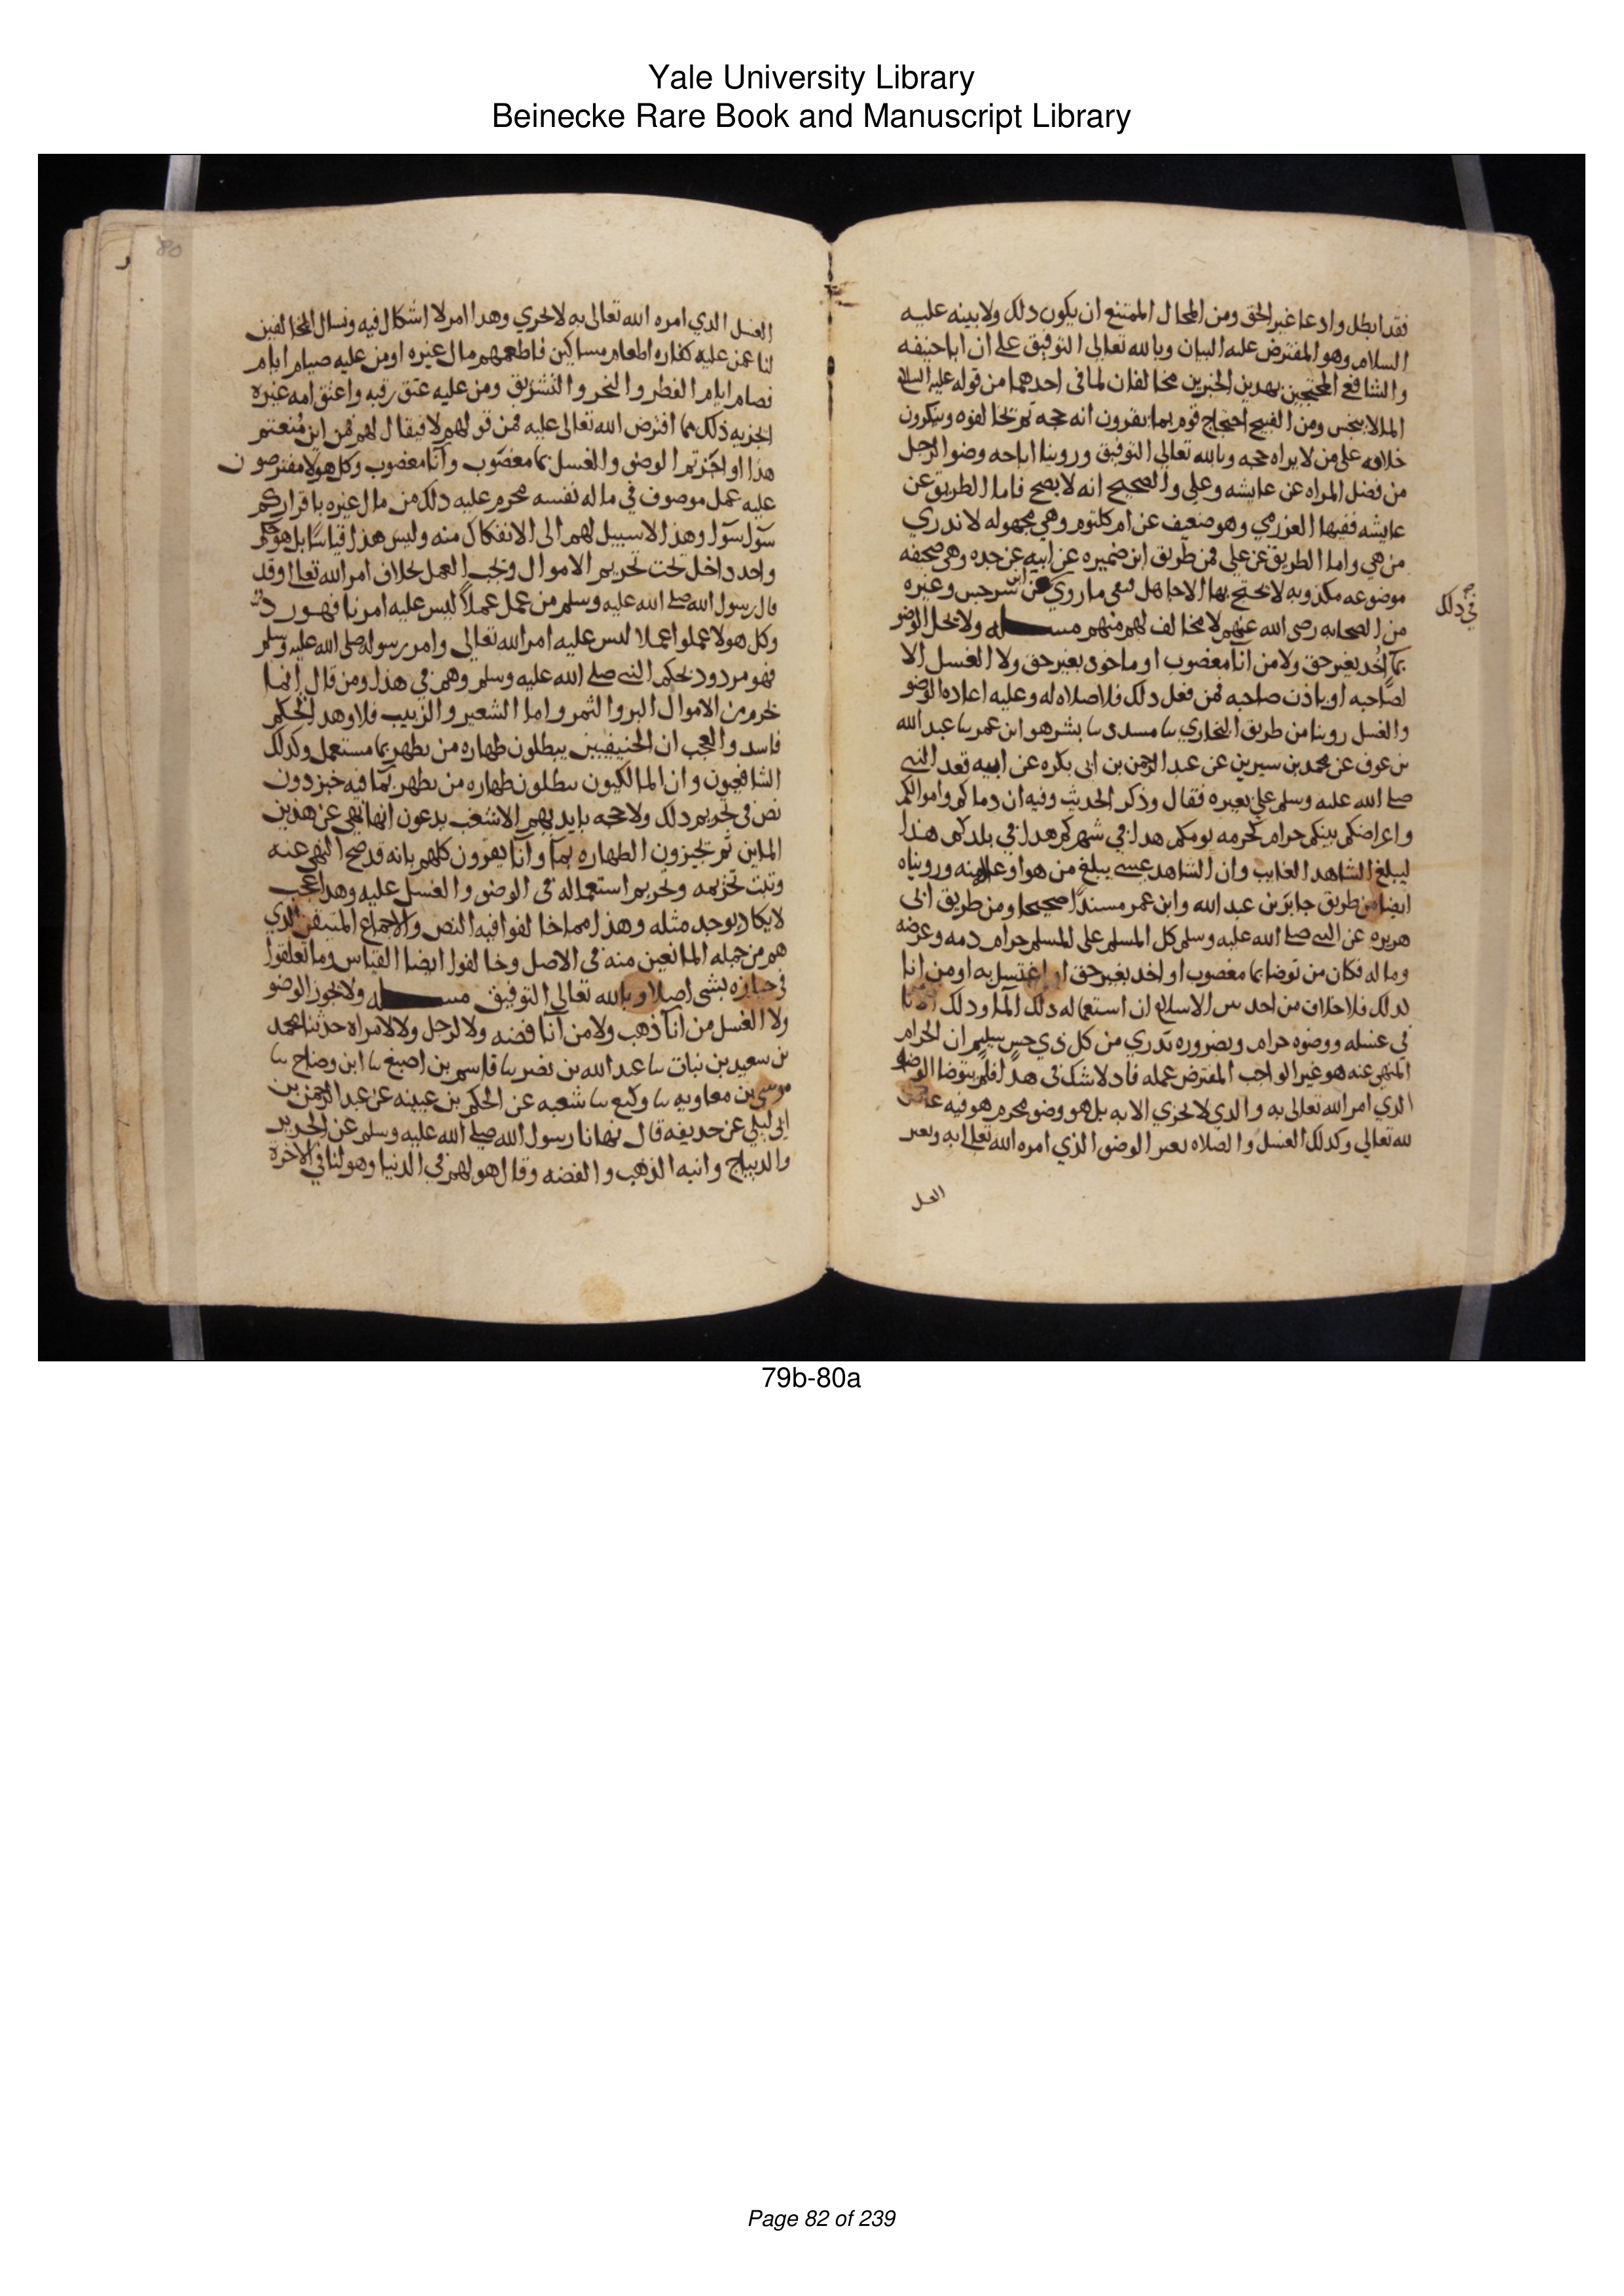 Yale University Library
Beinecke Rare Book and Manuscript Library
فقد ابطل وادعا غير الحق ومن المحال الممتنع ان يكون ذلك ولا يبينه عليه
السلام وهو المفترض عليه البيان وبالله تعالى التوفيق على ان ابا حنيفه
والشافعي المحتجين بهدين الخبرين مخالفان لما في احدهما من قوله عليه السلام
الما لا ينجس ومن القبيح احتجاج قوم بما يقرون انه حجه ثم تخالفوه وينكرون
خلافه على من لا يراه حجه وبالله تعالى التوفيق وروينا اباحه وضو الرجل
من فضل المراه عن عايشه وعلي والصحيح انه لا يصح فاما الطريق عن
عايشه ففيها العزرمي وهو ضعيف عن ام كلثوم وهي مجهوله لا ندري
من هي واما الطريق عن علي فمن طريق ابن ضميره عن ابيه عن جده وهي صحيفه
موضوعه مكذوبه لا يحتج بها الا جاهل فبقي ما روي عن ابن سرجس وغيره
في ذلك
من الصحابه رضي الله عنهم لا مخالف لهم منهم مسله ولا يحل الوضو
بما اُخد بغير حق ولا من انآ مغصوب او ماخوذ بغير حق ولا الغسل الا
لصاحبه او باذن صاحبه فمن فعل دلك فلا صلاه له وعليه اعاده الوضو
والغسل روينا من طريق البخاري سا مسدد سا بشر هو ابن عمر سا عبد الله
بن عوف عن محمد بن سيرين عن عبد الرحمن بن ابي بكره عن ابيه قعد النبي
صلى الله عليه وسلم على بعيره فقال وذكر الحديث وفيه ان دماكم واموالكم
واعراضكم بينكم حرام كحرمه يومكم هدا في شهركم هدا في بلدكم هذا
ليبلغ الشاهد الغايب وان الشاهد عسى يبلغ من هو اوعا له منه ورويناه
ايضا من طريق جابر بن عبد الله وابن عمر مسندًا صحيحا ومن طريق ابي
هريره عن النبي صلى الله عليه وسلم كل المسلم على المسلم حرام دمه وعرضه
وماله فكان من توضا بما مغصوب او اخد بغير حق او اغتسل به او من انا
لدلك فلا خلاف من احد من الاسلام ان استعماله دلك الما ودلك الانا
في غسله ووضوه حرام وبضروره ندري من كل ذي حس سليم ان الحرام
المنهي عنه هو غير الواجب المفترض عمله فاد لا شك في هدا فلم يتوضا الوضو
الذي امر الله تعالى به والدي لا تجزي الا به بل هو وضو محرم هو فيه عاص
لله تعالى وكدلك الغسل والصلاه بغير الوضو الذي امره الله تعالى به وبغير
الغسل
80
الغسل الدي امره الله تعالى به لا تجزي وهدا امر لا اشكال فيه ونسال المخالفين
لنا عمن عليه كفاره اطعام مساكين فاطعمهم مال غيره او من عليه صيام ايام
فصام ايام الفطر والنحر والتشريق ومن عليه عتق رقبه واعتق امه غيره
ايجزيه ذلك مما افترض الله تعالى عليه فمن قولهم لا فيقال لهم فمن اين منعتم
هذا واجزتم الوضو والغسل بما مغصوب وانا مغصوب وكل هولا مفترضون
عليه عمل موصوف في ماله نفسه محرم عليه دلك من مال غيره باقراركم
سوا سوا وهذا لا سبيل لهم الى الانفكاك منه وليس هذا قياسًا بل هو حكم
واحد داخل تحت تحريم الاموال وتجب العمل بخلاف امر الله تعالى وقد
قال رسول الله صلى الله عليه وسلم من عمل عملًا ليس عليه امرنا فهو رد
وكل هولا عملوا عملا ليس عليه امر الله تعالى وامر رسوله صلى الله عليه وسلم
فهو مردود بحكم النبي صلى الله عليه وسلم وهم في هذا ومن قال انما
تحرم من الاموال البر والثمر واما الشعير والزبيب فلا وهدا تحكم
فاسد والعجب ان الحنيفيين يبطلون طهاره من تطهر بما مستعمل وكدلك
الشافعيون وان المالكيون يبطلون طهاره من تطهر بما فيه خبز دون
نص في تحريم دلك ولا حجه بايديهم الا تشغب يدعون انها نهي عن هذين
الماين ثم تجيزون الطهاره بما وانا يقرون كلهم بانه قد صح النهي عنه
وثبت تحريمه وتحريم استعماله في الوضو والغسل عليه وهدا عجب
لا يكاد يوجد مثله وهذا مما خالفوا فيه النص والاجماع المتيقن الدي
هم من جمله المانعين منه في الاصل وخالفوا ايضا القياس وما تعلقوا
في جوازه بشى اصلا وبالله تعالى التوفيق مسله ولا تجوز الوضو
ولا الغسل من انآ ذهب ولا من انا فضه ولا لرجل ولا لامراه حدثنا محمد
بن سعيد بن نبات سا عبد الله بن نصر سا قاسم بن اصبغ سا ابن وضاح سا
موسى بن معاويه سا وكيع سا شعبه عن الحكم بن عيينه عن عبد الرحمن بن
ابي ليلى عن حديفه قال نهانا رسول الله صلى الله عليه وسلم عن الحرير
والديباج وانيه الذهب والفضه وقال هو لهم في الدنيا وهو لنا في الاخرة
79b-80a
Page 82 of 239